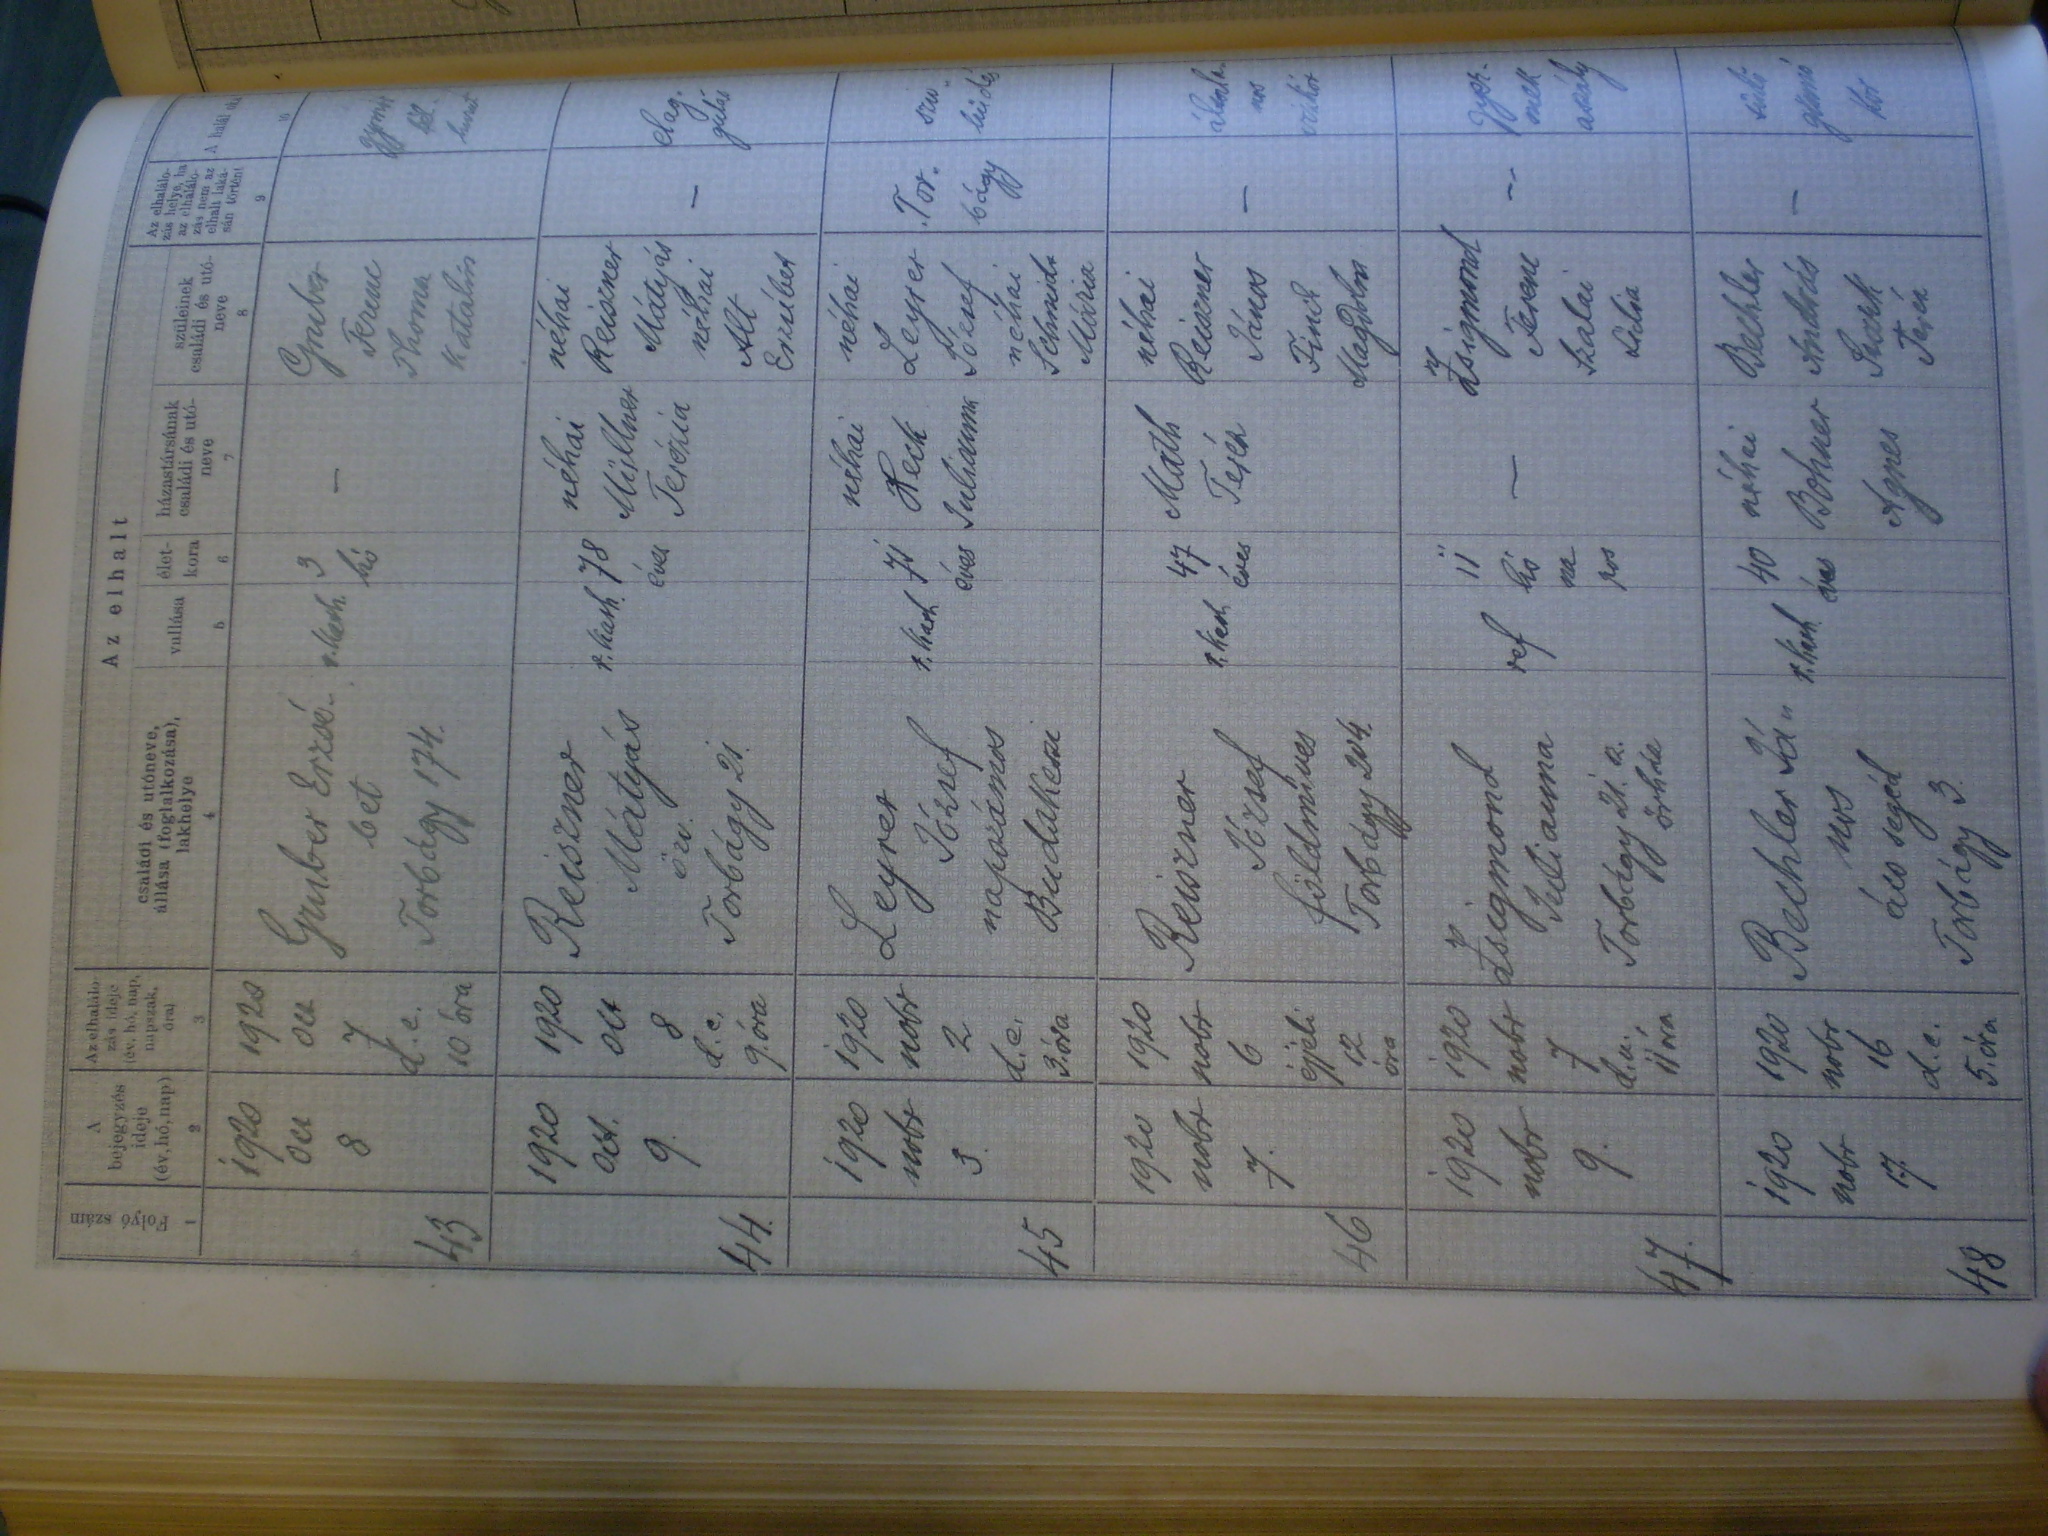 Az elhalt
Folyó szám
A
bejegyzés
ideje
(év, hó, nap)
Az elhalálo-
zás ideje
(év, hó, nap,
napszak,
óra)
családi és utóneve,
állása (foglalkozása),
lakhelye
vallása
élet-
kora
házastársának
családi és utó-
neve
szüleinek
családi és utó-
neve
Az elhalálo-
zás helye, ha
az elhalálo-
zás nem az
elhalt laká-
sán történt
A halál oka
1
2
3
4
5
6
7
8
9
10
43
1920
oct
8
1920
oct
7
d. e.
10 óra
Gruber Erzsé-
bet
Torbágy 174.
r. kath.
3
hó
—
Gruber
Ferenc
Thoma
Katalin
44.
1920
oct.
9.
1920
oct
8
d. e.
9. óra
Reiszner
Mátyás
özv.
Torbágy 21.
r. kath.
78
éves
néhai
Müllner
Terézia
néhai
Reiszner
Mátyás
néhai
Alt
Erzsébet
—
elag-
gulás
45
1920
nobr
3.
1920
nobr
2
d. e.
3. óra
Leyrer
József
napszámos
Budakeszi
r. kath
71
éves
néhai
Heck
Julianna
néhai
Leyrer
József
néhai
Schmidt
Mária
Tor-
bágy
szív-
hűdés
46
1920
nobr
7.
1920
nobr
6
éjjeli
12
óra
Reiszner
József
földmíves
Torbágy 204.
r. kath
47
éves
Math
Teréz
néhai
Reiszner
János
Fink
Magdolna
—
47.
1920
nobr
9.
1920
nobr
7
d. u.
11 óra
Zsigmond
Julianna
Torbágy 21. a.
őrház
ref
11
hó
na
pos
—
Zsigmond
Ferenc
Szalai
Lidia
—
48
1920
nobr
17
1920
nobr
16
d. e.
5. óra
Bechler Já-
nos
ács segéd
Torbágy 3.
r. kath.
40
éves
néhai
Bohner
Ágnes
Bechler
András
Teréz
—
tüdő
gümő
kór